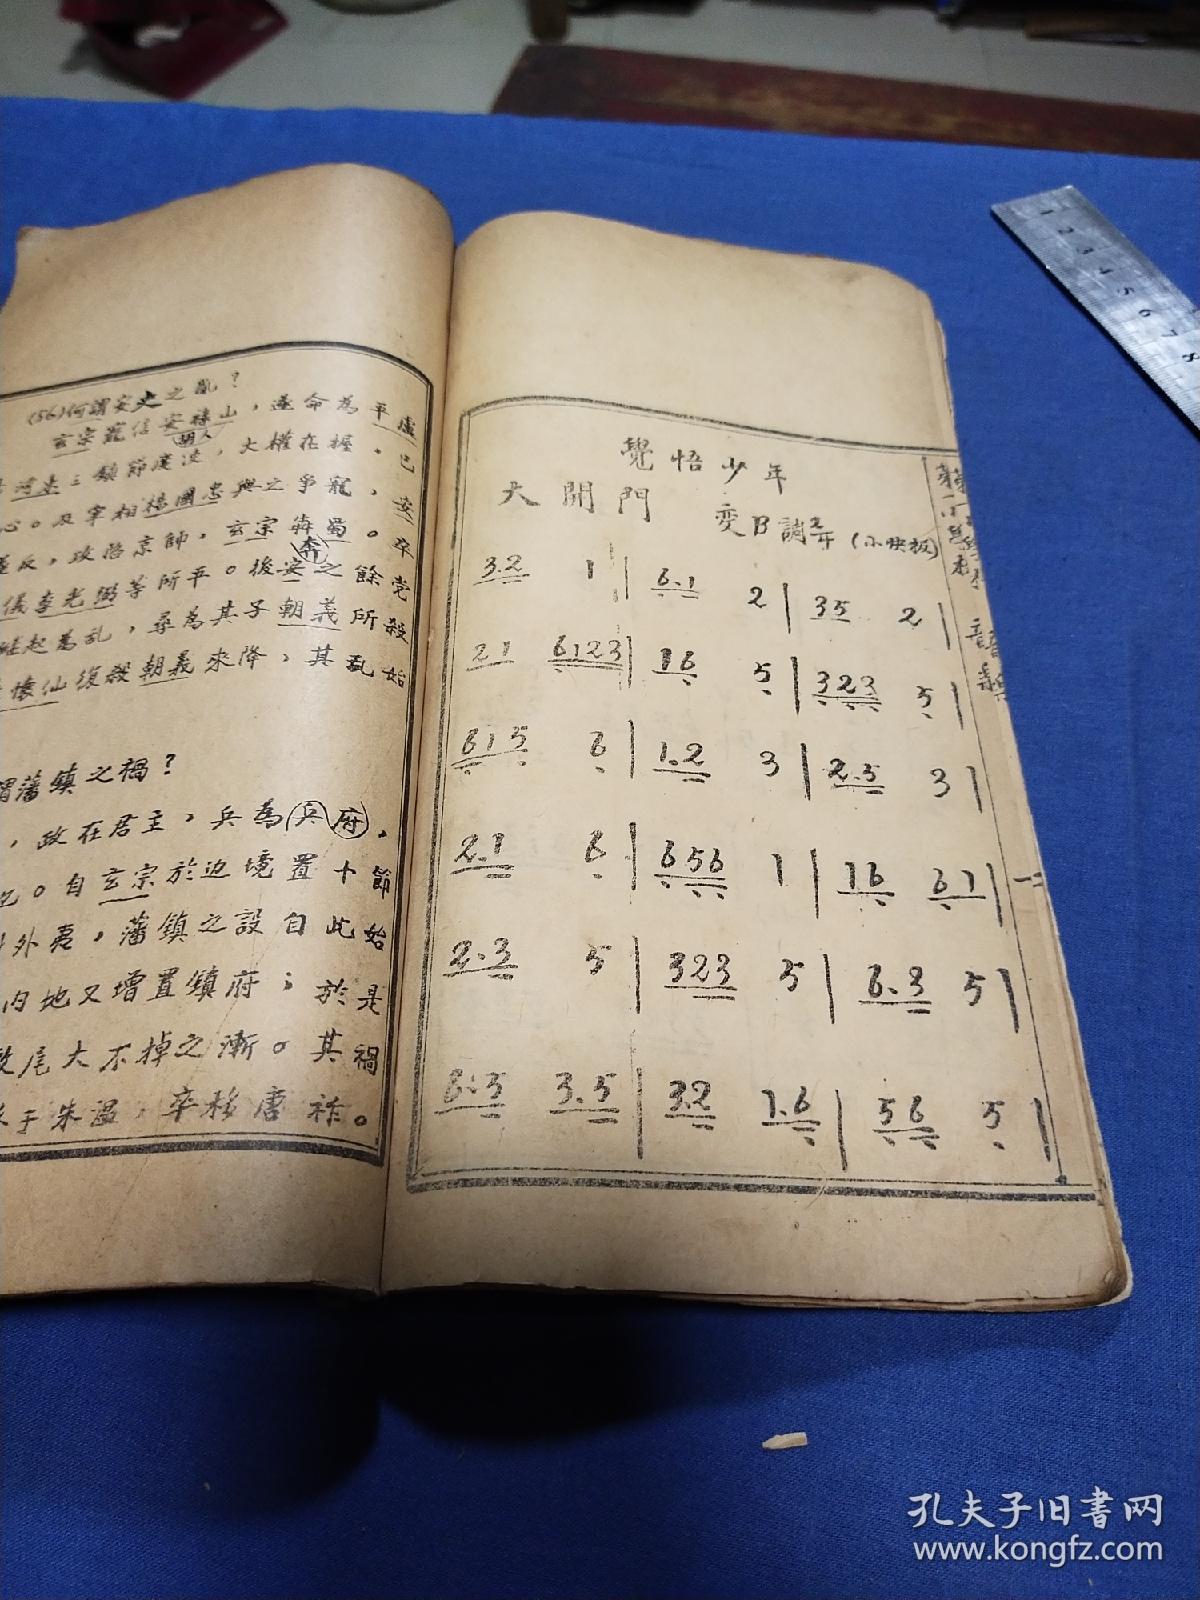 (56)何謂安史之亂？
玄宗寵信安祿山，遂命為平盧
胡人
河東三鎮節度使，大權在握。已
心。及宰相楊國忠與之爭寵，安
反，攻陷京師，玄宗犇蜀。卒
奔
儀李光弼等所平。後安之餘党
起為乱，尋為其子朝義所殺
懷仙復殺朝義來降，其乱始
謂藩鎮之禍？
，政在君主，兵為兵府，
。自玄宗於边境置十節
外夷，藩鎮之設自此始
内地又增置鎮府；於是
尾大不掉之漸。其禍
于朱溫，卒移唐祚。
覺悟少年
大開門 变B調2/4 (小快板)
3.2 1 | 6.1 2 | 35 2 |
21 6123 | 16 5 | 323 5 |
615 6 | 1.2 3 | 2.5 3 |
2.1 6 | 656 1 | 16 61 |
2.3 5 | 323 5 | 6.3 5 |
6.5 3.5 | 32 1.6 | 56 5 |
譜
1 2 3 4 5 6 7 8
孔夫子旧书网
www.kongfz.com